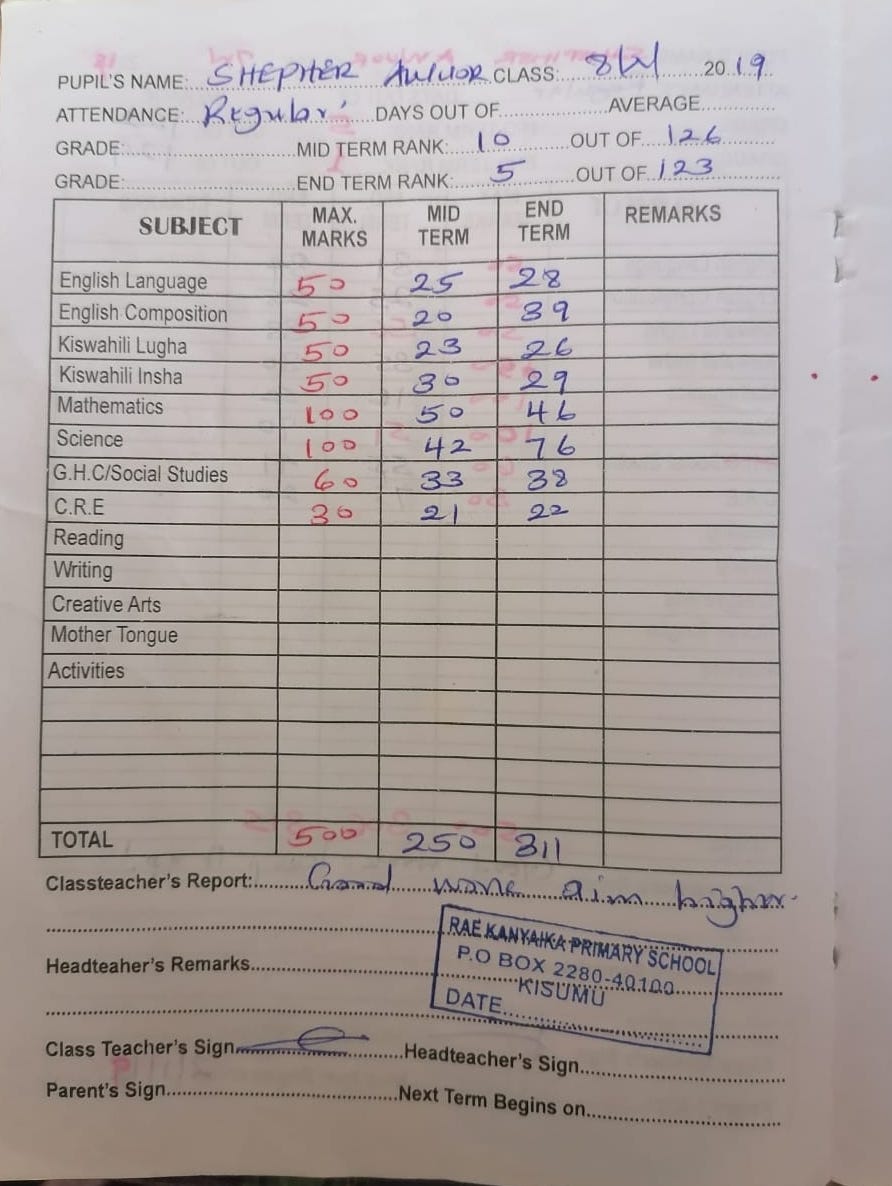 PUPIL'S NAME: SHEPHER AWUOR CLASS: 8W 2019
ATTENDANCE: Regular DAYS OUT OF AVERAGE
GRADE: MID TERM RANK: 10 OUT OF 126
GRADE: END TERM RANK: 5 OUT OF 123
SUBJECT MAX. MARKS MID TERM END TERM REMARKS
English Language 50 25 28
English Composition 50 20 39
Kiswahili Lugha 50 23 26
Kiswahili Insha 50 30 29
Mathematics 100 50 46
Science 100 42 76
G.H.C/Social Studies 60 33 38
C.R.E 30 21 22
Reading
Writing
Creative Arts
Mother Tongue
Activities
TOTAL 500 250 311
Classteacher's Report: Good aim higher.
RAE KANYAIKA PRIMARY SCHOOL
P.O BOX 2280-40100
KISUMU
DATE
Headteaher's Remarks
Class Teacher's Sign Headteacher's Sign
Parent's Sign Next Term Begins on